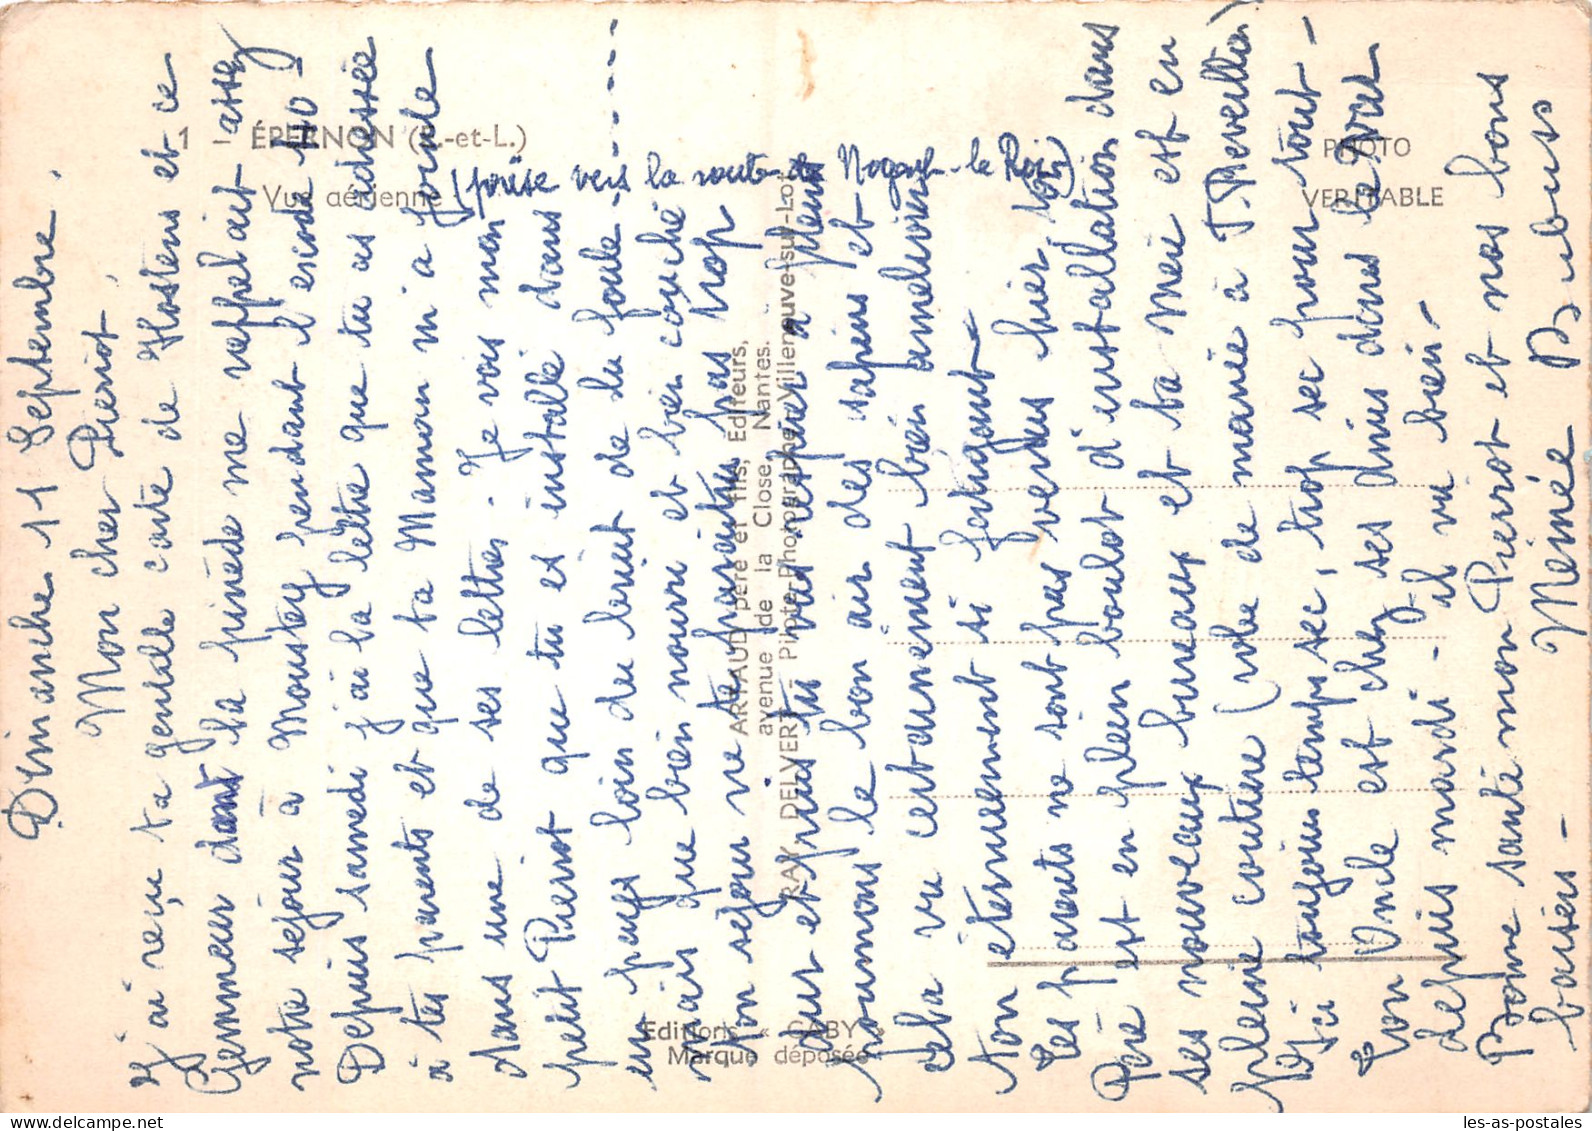 1 - ÉPERNON (E.-et-L.)
Vue aérienne
(prise vers la route de Nogent-le-Roi)
PHOTO
VERITABLE
ARTAUD père et fils, Editeurs,
avenue de la Close, Nantes.
RAY DELVERT - Pilote-Photographe Villeneuve-sur-Lot
Editions « GABY »
Marque déposée
Dimanche 11 Septembre.
Mon cher Pierrot,
J'ai reçu ta gentille carte de Hostens et ce
Gemmeur dans la pinède me rappelait assez
notre séjour à Moustey pendant l'exode 40
Depuis samedi j'ai la lettre que tu as adressée
à tes parents et que ta Maman m'a jointe
dans une de ses lettres. Je vois mon
petit Pierrot que tu es installé dans
un pays loin du bruit de la foule
mais que bien nourri et bien couché
ton séjour ne te paraîtra pas trop
dur et puis tu vas respirer à pleins
poumons le bon air des sapins et
cela va certainement bien améliorer
ton éternuement si fatigant
Tes parents ne sont pas venus hier, ton
Père est en plein boulot d'installation dans
ses nouveaux bureaux et ta mère est en
pleine couture (robe de mariée à T. Reveillon)
Ici toujours temps sec, trop sec pour tout -
Ton Oncle est chez ses amis dans le Var
depuis mardi - il va bien -
Bonne santé mon Pierrot et nos bons
baisers -
Mémé Bubuss
les-as-postales